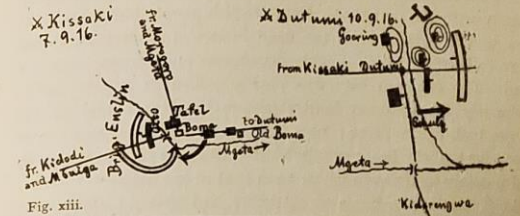 ⚔ Kissaki
7.9.16.
fr. Morogoro
and Mgeta
Brig. Enslin
Otto
Tafel
Boma
to Dutumi
Old Boma
Mgeta →
fr. Kidodi
and Mbuiga
Fig. xiii.
⚔ Dutumi 10.9.16.
Goering
From Kissaki
Dutumi
Schulz
Mgeta →
Kiderengwa